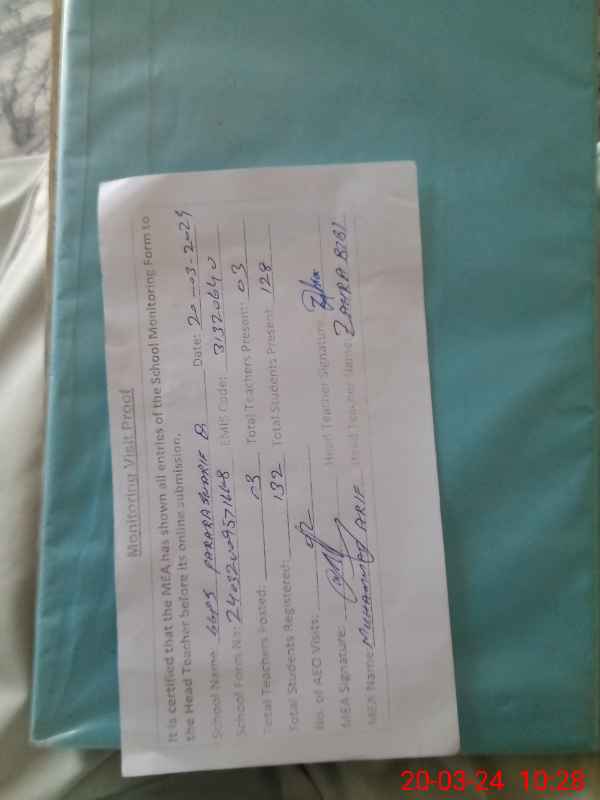 Monitoring Visit Proof
It is certified that the MEA has shown all entries of the School Monitoring Form to
the Head Teacher before its online submission.
School Name GGPS PARARA SHARIF B Date: 20-03-2024
School Form No: EMIS Code: 31320640
Total Teachers Posted: 03 Total Teachers Present: 03
Total Students Registered: 132 Total Students Present 128
No. of AEO Visits: 02
MEA Signature: Head Teacher Signature
MEA Name: MUHAMMAD ARIF Head Teacher Name ZAHRA BIBI
20-03-24 10:28